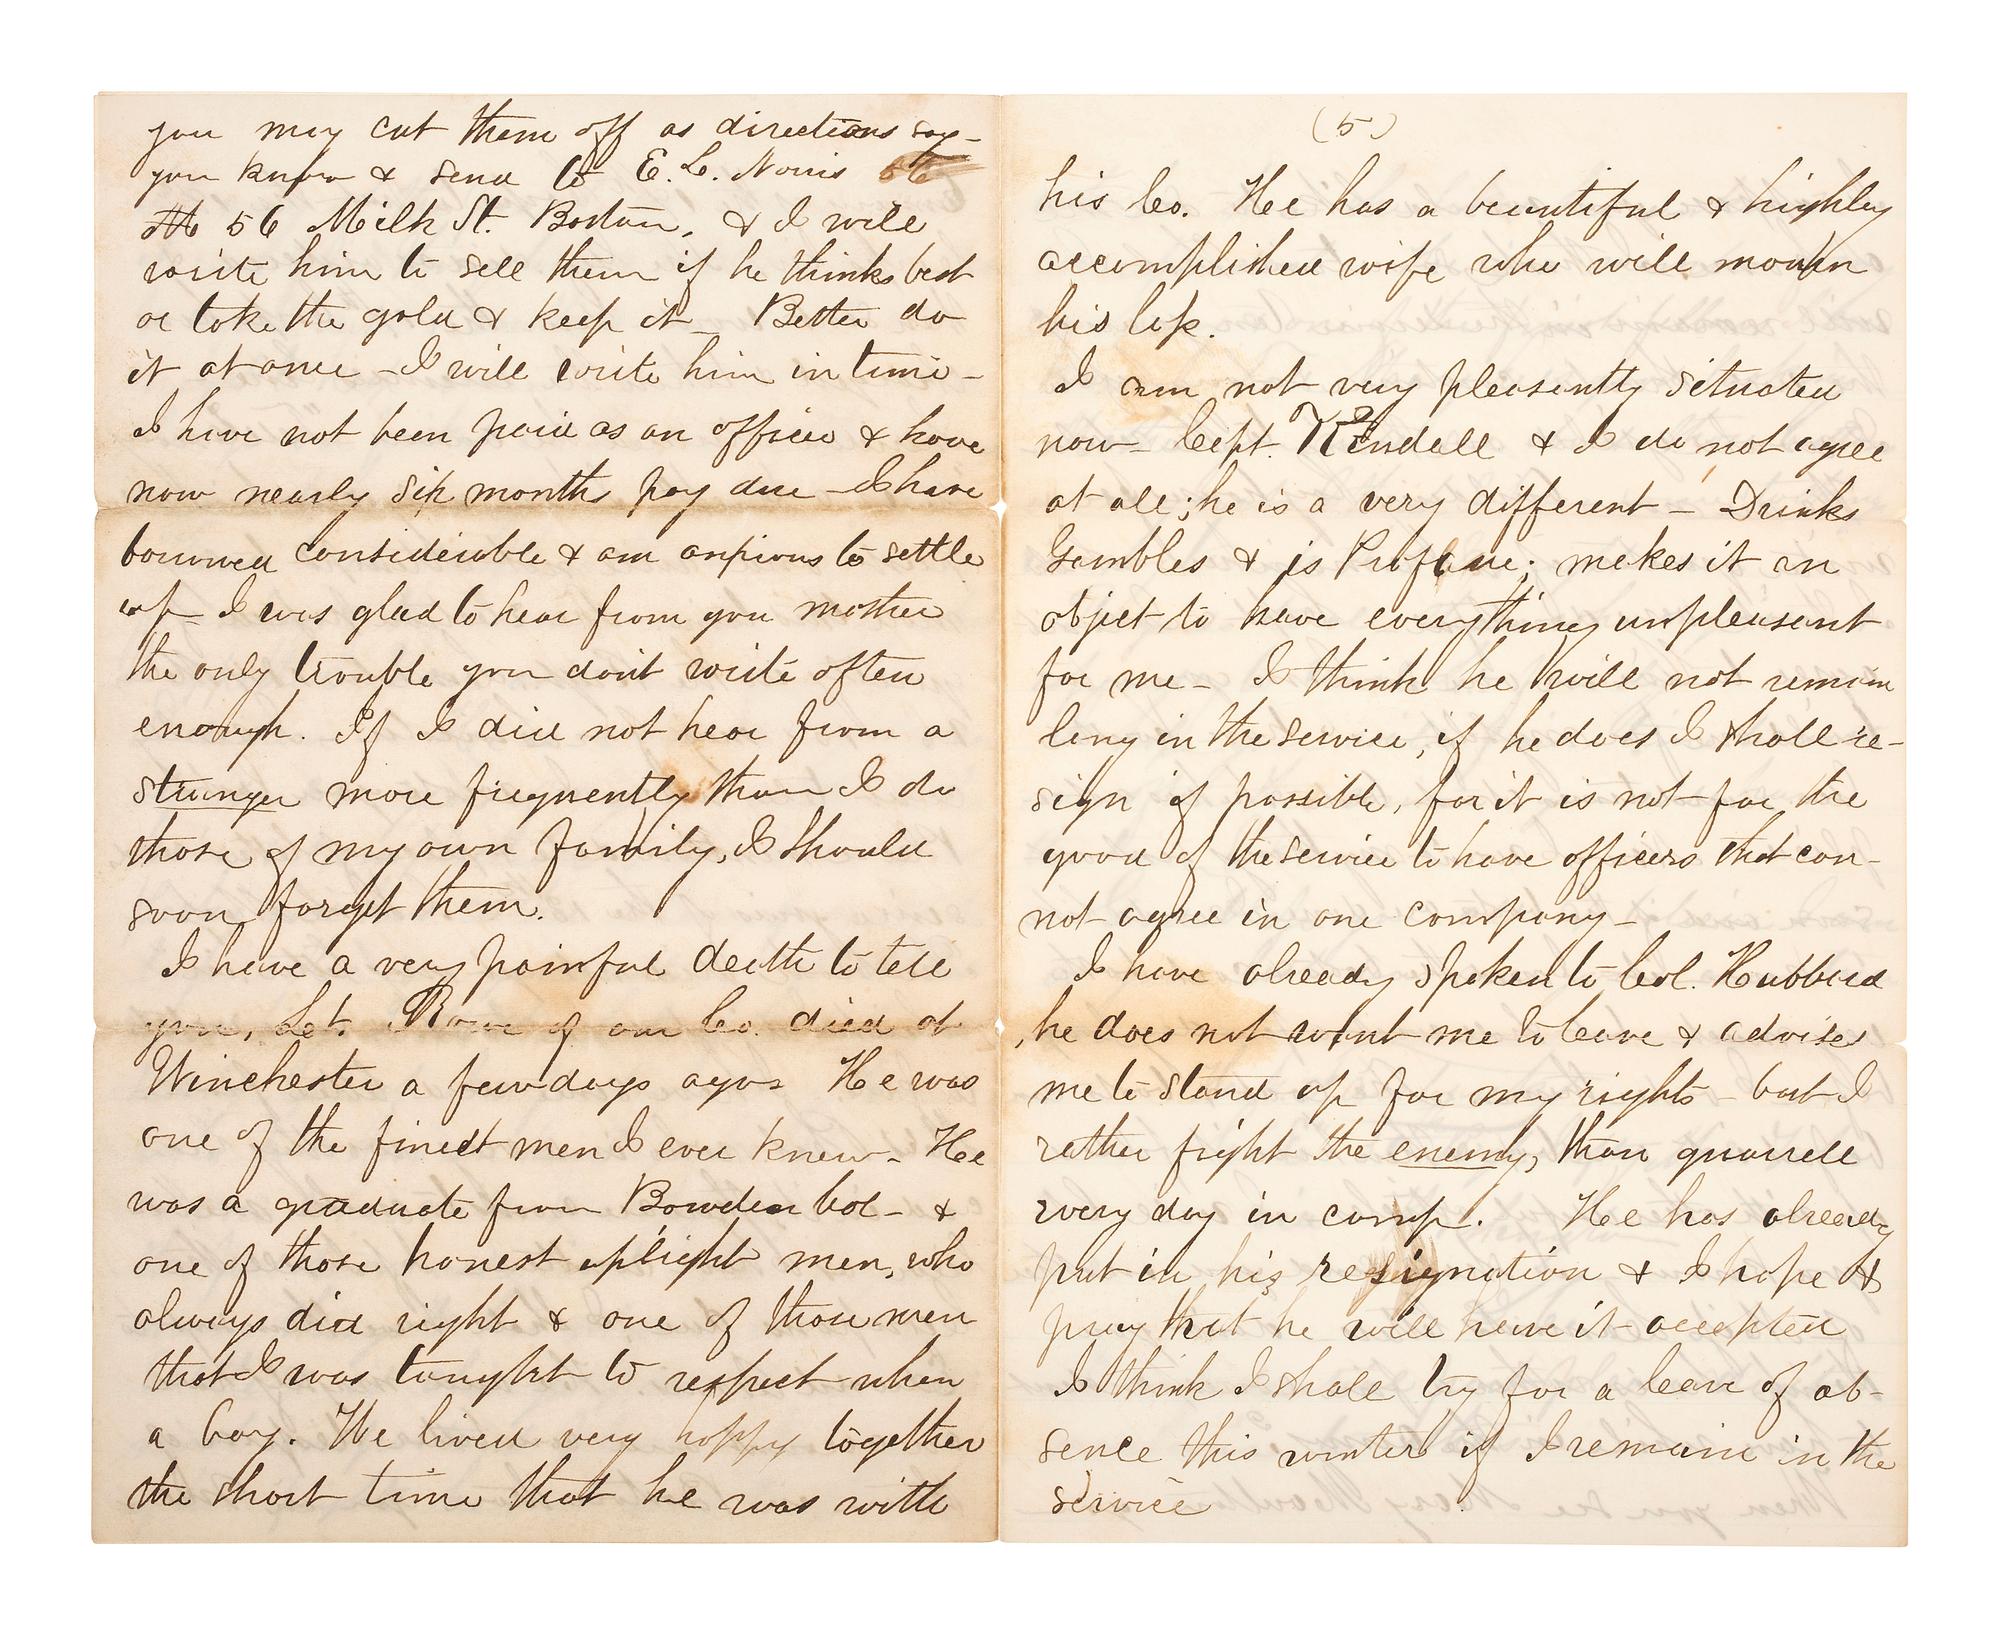 you may cut them off as directions say -
you know & send to E. L. Norris
56 Milk St. Boston, & I will
write him to sell them if he thinks best
or take the gold & keep it - Better do
it at once - I will write him in time -
I have not been paid as an officer & have
now nearly six months pay due - I have
borrowed considerable & am anxious to settle
up - I was glad to hear from you mother
the only trouble you dont write often
enough. If I did not hear from a
stranger more frequently than I do
those of my own family, I should
soon forget them.
I have a very painful death to tell
you, Lt. Rowe of our Co. died at
Winchester a few days ago. He was
one of the finest men I ever knew - He
was a graduate from Bowdon Col - &
one of those honest upright men, who
always did right & one of those men
that I was taught to respect when
a boy. We lived very happy together
the short time that he was with
(5)
his Co. He has a beautiful & highly
accomplished wife who will mourn
his loss.
I am not very pleasently situated
now - Capt. Kendall & I do not agree
at all; he is a very different - Drinks
Gambles & is Profane; makes it an
object to have everything unpleasant
for me - I think he will not remain
long in the service, if he does I shall re-
sign if possible, for it is not for the
good of the service to have officers that can-
not agree in one company -
I have already spoken to Col. Hubbard
he does not want me to leave & advises
me to stand up for my rights - but I
rather fight the enemy, than quarrell
every day in camp. He has already
put in his resignation & I hope &
pray that he will have it accepted
I think I shall try for a leave of ab-
sence this winter if I remain in the
service